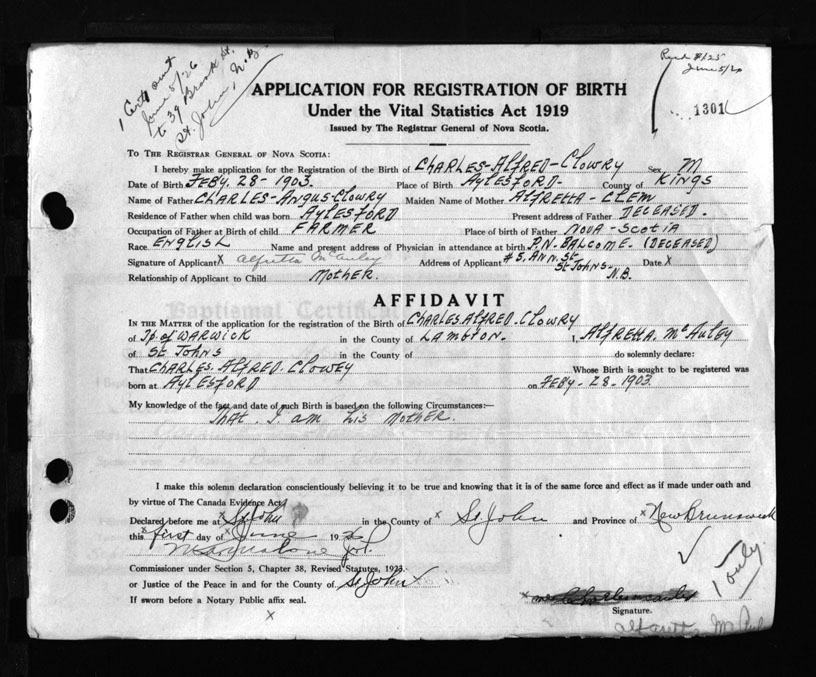 1 Cert sent
June 5/26
to 39 Brook St.
St. John, N.B.
Recd 8/25
June 5/26
1301
APPLICATION FOR REGISTRATION OF BIRTH
Under the Vital Statistics Act 1919
Issued by The Registrar General of Nova Scotia.
TO THE REGISTRAR GENERAL OF NOVA SCOTIA:
I hereby make application for the Registration of the Birth of CHARLES-ALFRED-CLOWRY Sex M
Date of Birth FEBY. 28-1903. Place of Birth AYLESFORD- County of KINGS
Name of Father CHARLES-ANGUS-CLOWRY Maiden Name of Mother ALFRETTA-CLEM
Residence of Father when child was born AYLESFORD Present address of Father DECEASED.
Occupation of Father at Birth of child FARMER Place of birth of Father NOVA-SCOTIA
Race ENGLISH Name and present address of Physician in attendance at birth P.N. BALCOME. (DECEASED)
Signature of Applicant X alfretta McAuley Address of Applicant #5, ANN. St. St JOHNS- N.B. Date X
Relationship of Applicant to Child MOTHER.
AFFIDAVIT
IN THE MATTER of the application for the registration of the Birth of CHARLES. ALFRED. CLOWRY
of Tp. of WARWICK in the County of LAMBTON. I, ALFRETTA. McAULEY
of ST. JOHNS in the County of do solemnly declare:
That CHARLES. ALFRED. CLOWEY Whose Birth is sought to be registered was
born at AYLESFORD on FEBY-28-1903.
My knowledge of the fact and date of such Birth is based on the following Circumstances:—
THAT. I. am his MOTHER.
I make this solemn declaration conscientiously believing it to be true and knowing that it is of the same force and effect as if made under oath and
by virtue of The Canada Evidence Act.
Declared before me at X St John in the County of X St John and Province of X New Brunswick
this X first day of X June 1926
J.P.
Commissioner under Section 5, Chapter 38, Revised Statutes, 1923.
or Justice of the Peace in and for the County of St John X
If sworn before a Notary Public affix seal.
X
1 only.
X
Signature.
alfretta McAul